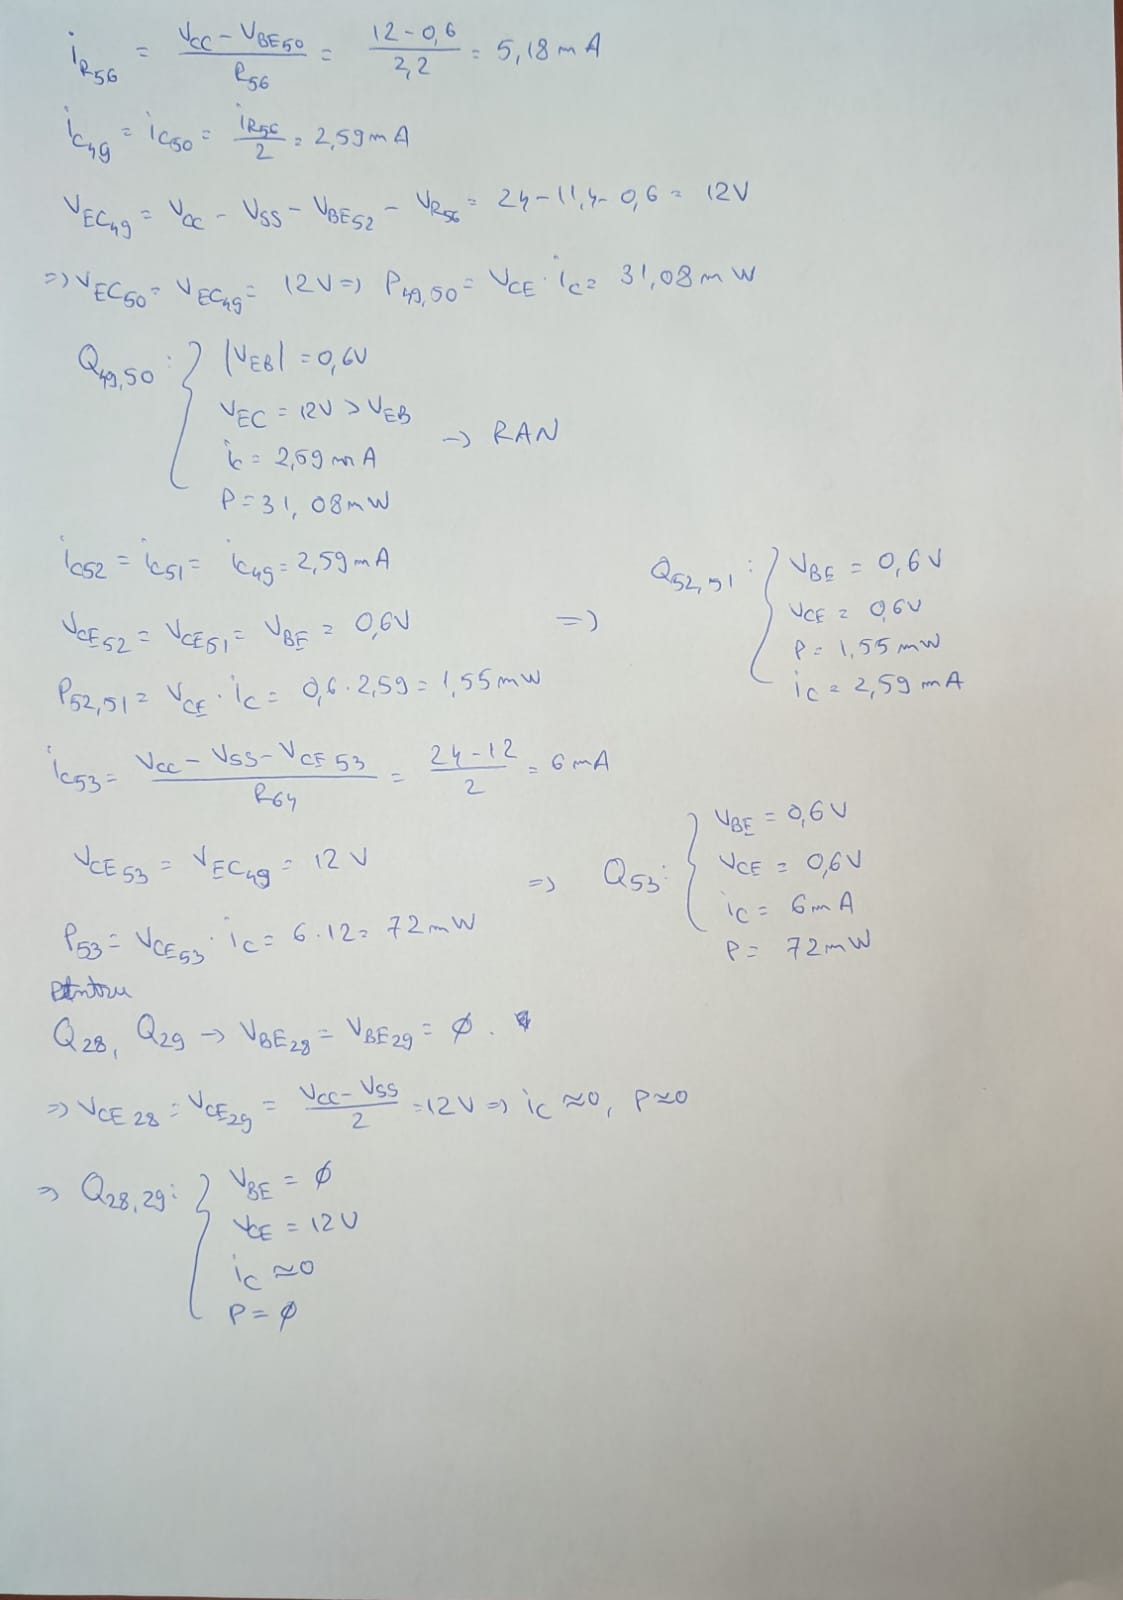 i_R56 = (V_CC - V_BE50) / R_56 = (12 - 0,6) / 2,2 = 5,18 mA
i_C49 = i_C50 = i_R56 / 2 = 2,59 mA
V_EC49 = V_CC - V_SS - V_BE52 - V_R56 = 24 - 11,4 - 0,6 = 12V
=> V_EC50 = V_EC49 = 12V => P_49,50 = V_CE · i_C = 31,08 mW
Q_49,50 : { |V_EB| = 0,6V
V_EC = 12V > V_EB
i_C = 2,59 mA
-> RAN
P = 31,08 mW
i_C52 = i_C51 = i_C49 = 2,59 mA
V_CE52 = V_CE51 = V_BE = 0,6V
P_52,51 = V_CE · i_C = 0,6 · 2,59 = 1,55 mW
=> Q_52,51 : { V_BE = 0,6V
V_CE = 0,6V
P = 1,55 mW
i_C = 2,59 mA
i_C53 = (V_CC - V_SS - V_CE53) / R_64 = (24 - 12) / 2 = 6 mA
V_CE53 = V_EC49 = 12V
P_53 = V_CE53 · i_C = 6 · 12 = 72 mW
=> Q_53 : { V_BE = 0,6V
V_CE = 0,6V
i_C = 6 mA
P = 72 mW
Pentru
Q_28, Q_29 -> V_BE28 = V_BE29 = ∅.
=> V_CE28 = V_CE29 = (V_CC - V_SS) / 2 = 12V => i_C ≈ 0, P ≈ 0
=> Q_28,29 : { V_BE = ∅
V_CE = 12V
i_C ≈ 0
P = ∅